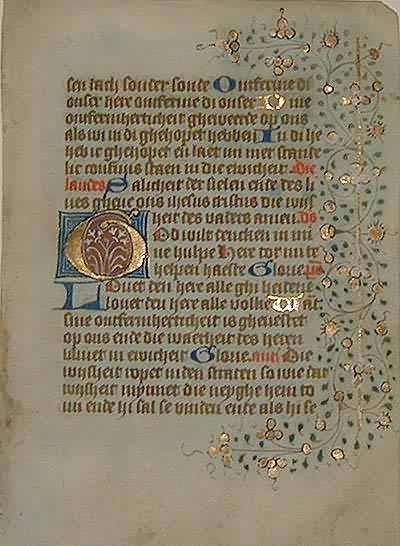 sen dach sonder sonde Ontferme di
onser here ontferme di onser Dine
ontfermherticheit ghewerde op ons
als wi in di ghehopet hebben In di he
heb ic ghehopet en laet mi niet scande
lic confuus staen in die ewicheit Die
laudes Salicheit der sielen ende des li
ues gheue ons ihesus christus die wijs
heit des vaders amen ds
God wilt trucken in mi
ne hulpe Here tot mi te
helpen haeste Glorie ps
Louet den here alle ghi heidene
louet den here alle volke Want
sine ontfermherticheit is gheuestet
op ons ende die waerheit des heren
bliuet in ewicheit Glorie ant Die
wijsheit ropet in den straten so wie dat
wijsheit mynnet die neyghe hem to
mi ende hi sal se vinden ende als hi se